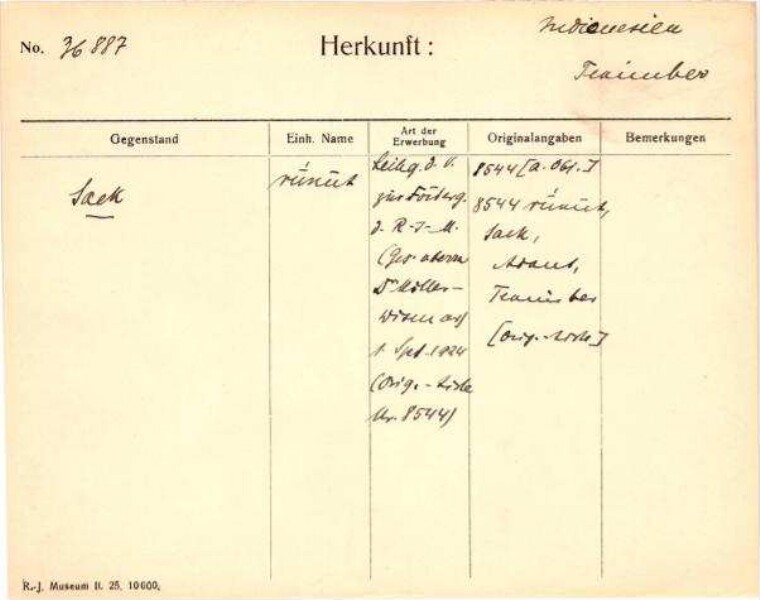 No. 36887
Herkunft:
Indonesien
Tanimber
Gegenstand
Einh. Name
Art der
Erwerbung
Originalangaben
Bemerkungen
Sack
rúnut
Leihg. d. V.
zur Förderg.
d. R-J-M.
(Ges.
Dr Müller-
Wismar)
1. Spt. 1924
(Orig.-Liste
Nr. 8544)
8544 [a. Obj.]
8544 rúnut,
Sack,
Adaut,
Tanimber
[Orig.-Liste]
R.-J. Museum II. 25. 10000.